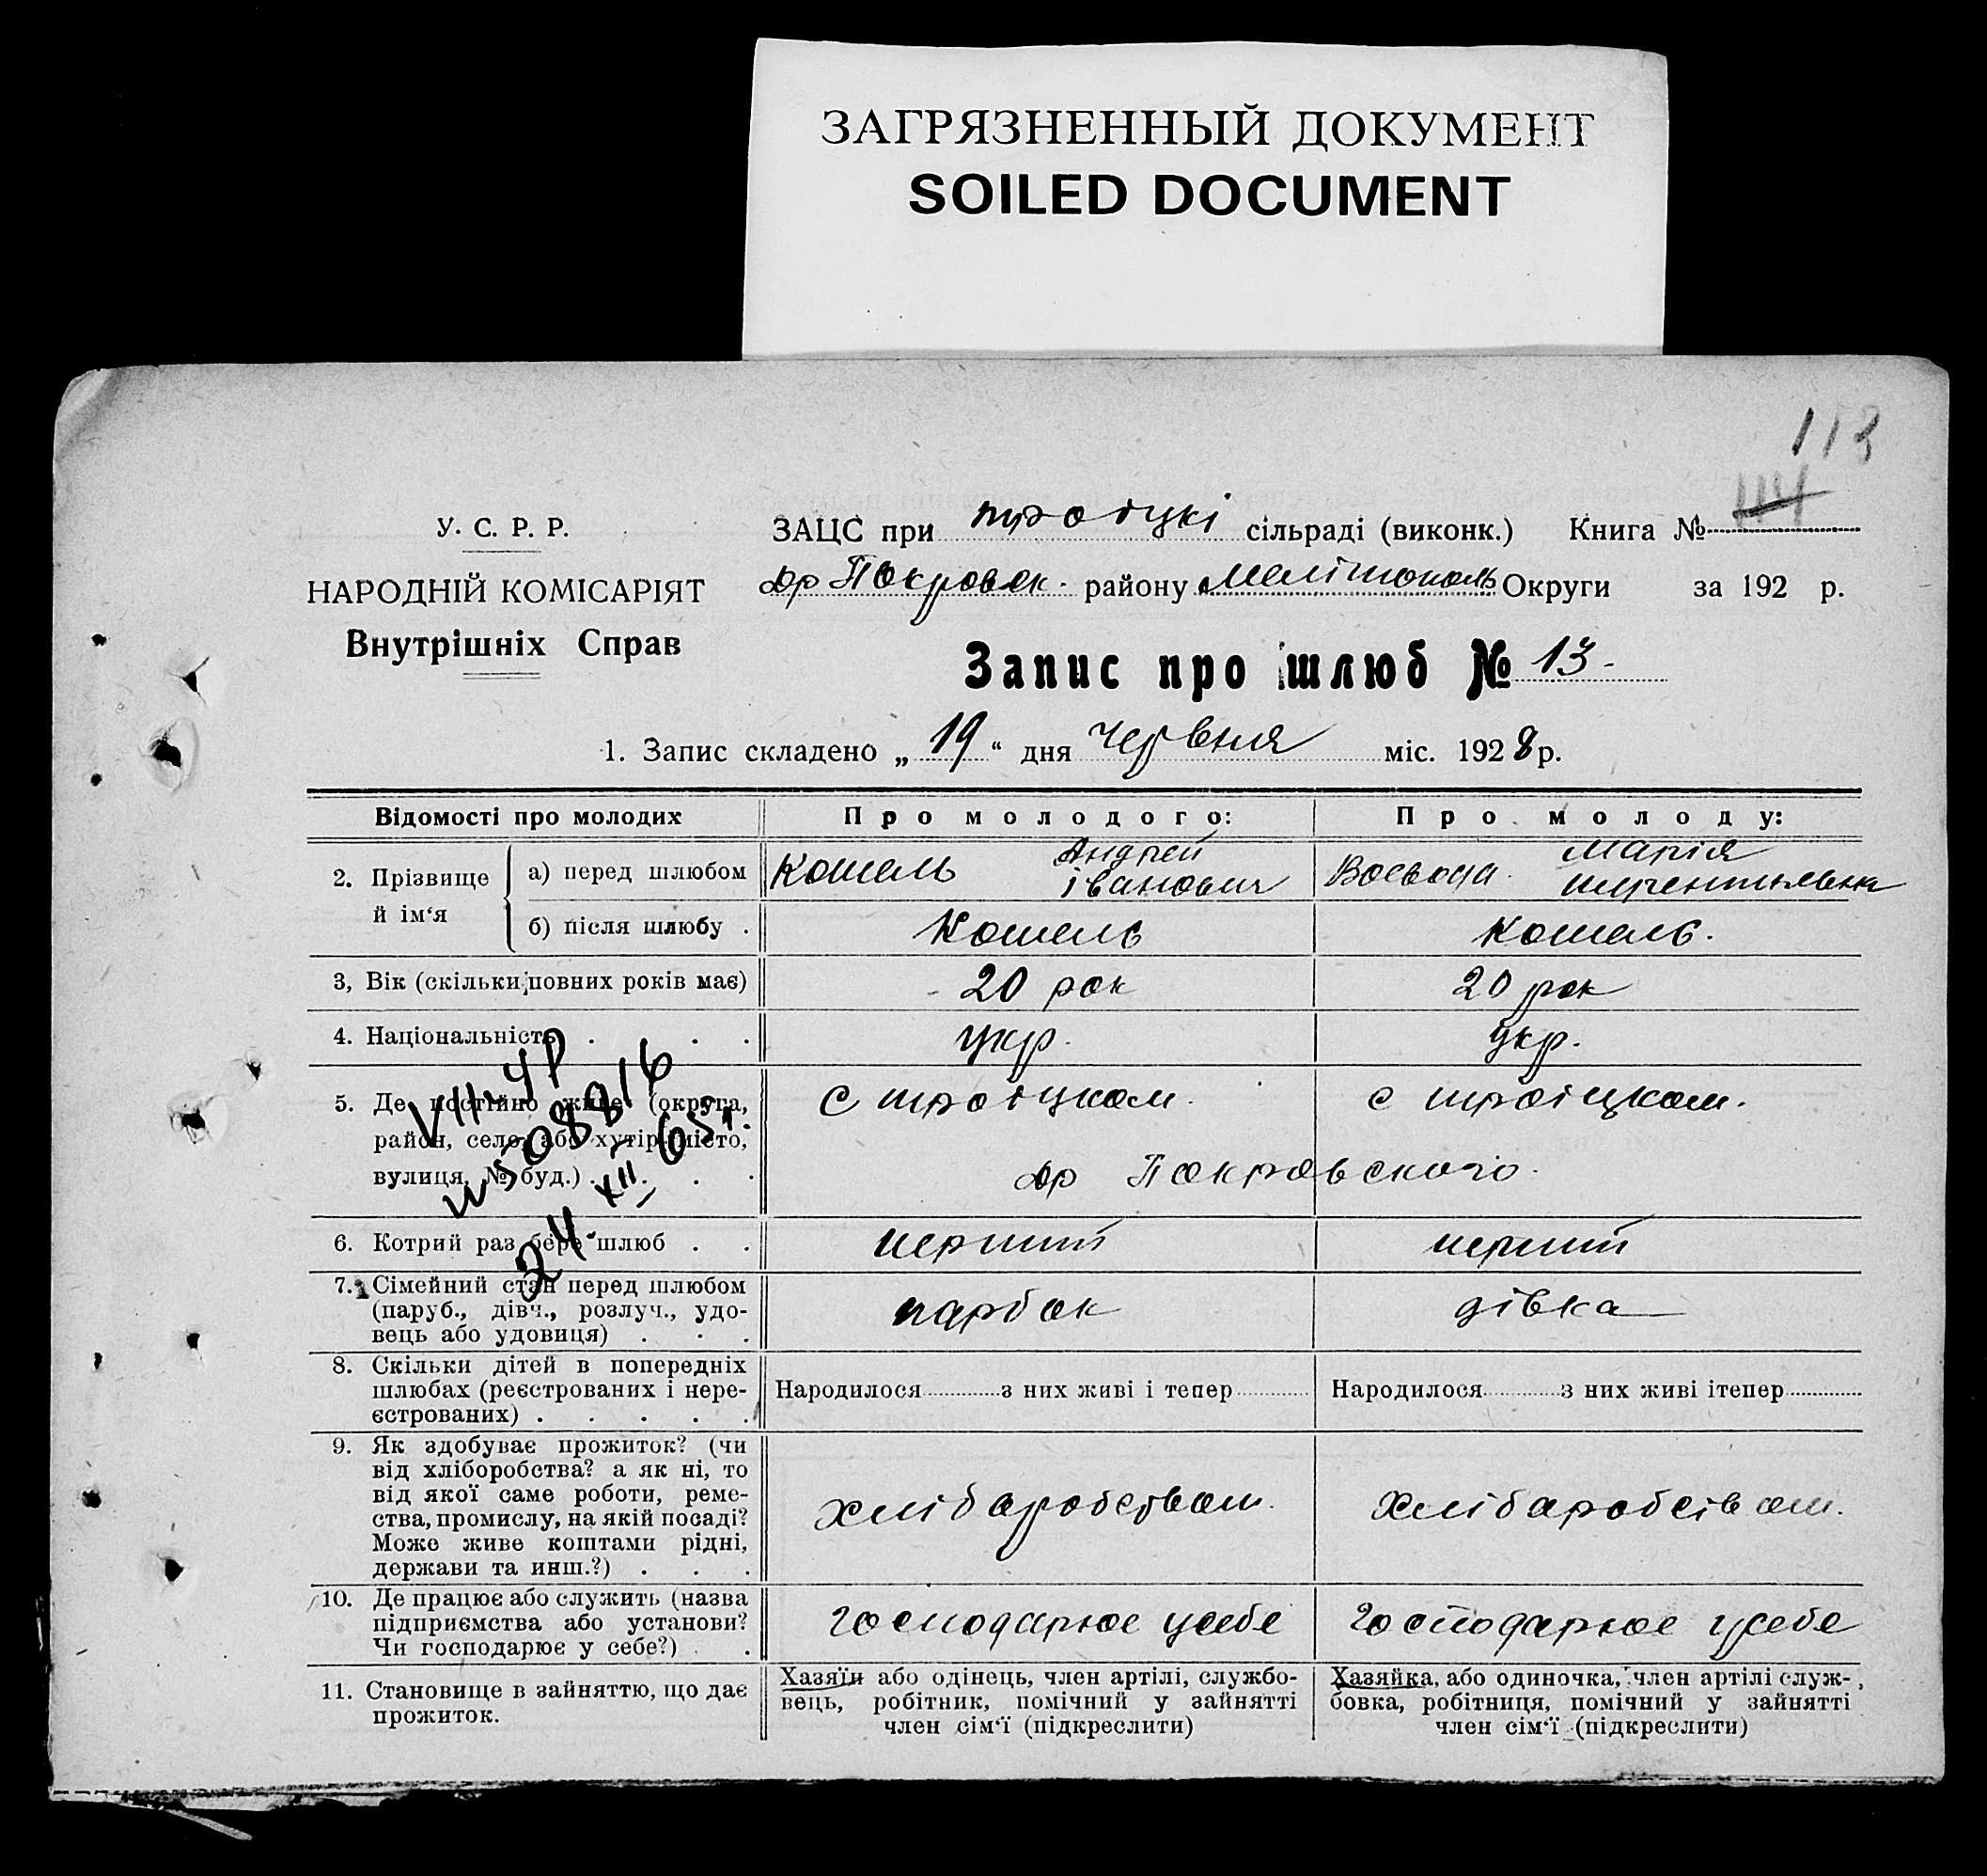 ЗАГРЯЗНЕННЫЙ ДОКУМЕНТ
SOILED DOCUMENT
113
114
У. С. Р. Р.
НАРОДНІЙ КОМІСАРІЯТ
Внутрішніх Справ
ЗАЦС при троїцкі сільраді (виконк.) Книга №
др Покровск. району Мелітополь Округи за 192 р.
Запис про шлюб № 13.
1. Запис складено „ 19 “ дня червня міс. 1928 р.
Відомості про молодих
Про молодого:
Про молоду:
2. Прізвище й ім‘я
а) перед шлюбом
Кошель Андрей Іванович
Воевода Марія
б) після шлюбу .
Кошель
Кошель.
3, Вік (скільки повних років має)
20 рок
20 рок
4. Національність . . .
укр.
укр.
5. Де постійно живе (округа,
район, село, або хутір, місто,
вулиця, № буд.) . . . .
с троїцком.
с троїцком.
др Покровского.
6. Котрий раз бере шлюб . .
перший
перший
7. Сімейний стан перед шлюбом
(паруб., дівч., розлуч., удо-
вець або удовиця) . . .
парбок
дівка
8. Скільки дітей в попередніх
шлюбах (реєстрованих і нере-
єстрованих) . . . . .
Народилося з них живі і тепер
Народилося з них живі ітепер
9. Як здобуває прожиток? (чи
від хліборобства? а як ні, то
від якої саме роботи, реме-
ства, промислу, на якій посаді?
Може живе коштами рідні,
держави та инш.?) . . .
хлібаробством.
хлібаробством.
10. Де працює або служить (назва
підприємства або установи?
Чи господарює у себе?) . .
господарюе усебе
господарюе усебе
11. Становище в зайняттю, що дає
прожиток.
Хазяїн або одінець, член артілі, службо-
вець, робітник, помічний у зайнятті
член сім‘ї (підкреслити)
Хазяйка, або одиночка, член артілі служ-
бовка, робітниця, помічний у зайнятті
член сім‘ї (підкреслити)
24 XII 65